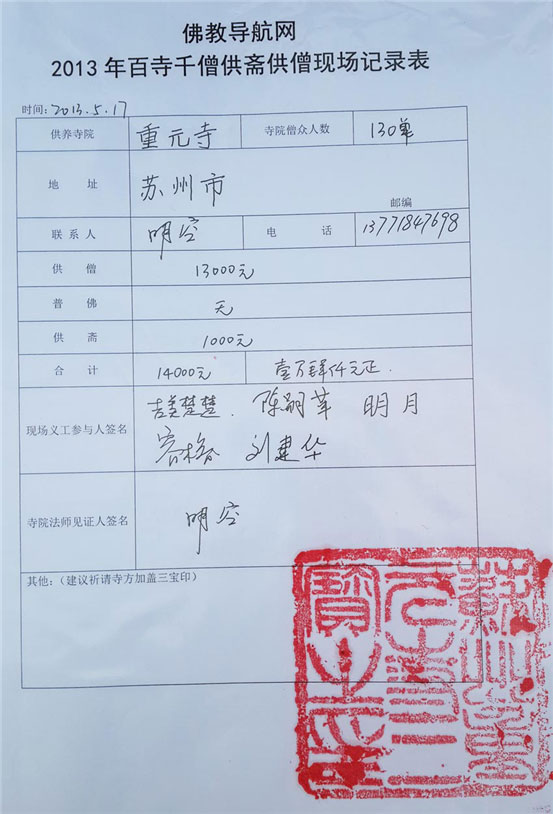 佛教导航网
2013年百寺千僧供斋供僧现场记录表
时间:2013.5.17
供养寺院 重元寺 寺院僧众人数 130单
地 址 苏州市 邮编
联系人 明空 电 话 13771847698
供 僧 13000元
普 佛 无
供 斋 1000元
合 计 14000元 壹万肆仟元正.
现场义工参与人签名 楚楚. 陈 苹 明月
刘建华
寺院法师见证人签名 明空
其他:(建议祈请寺方加盖三宝印)
苏州重
元寺三
寶之印